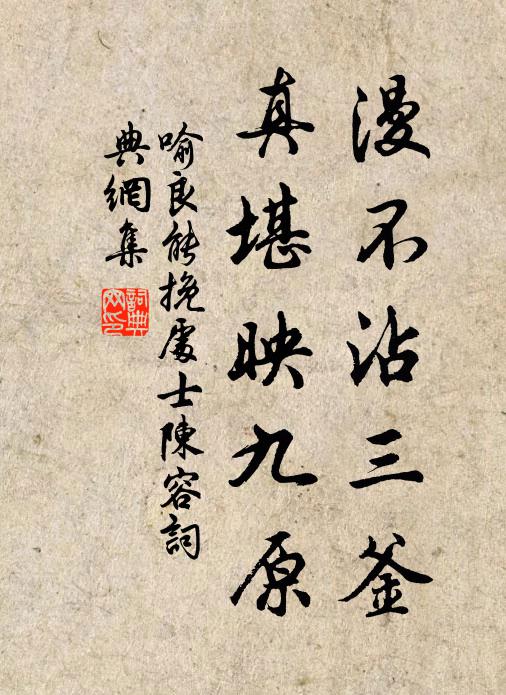 漫不沾三釜
真堪映九原
喻良能挽處士陳容詞
典網集
詞典
网印